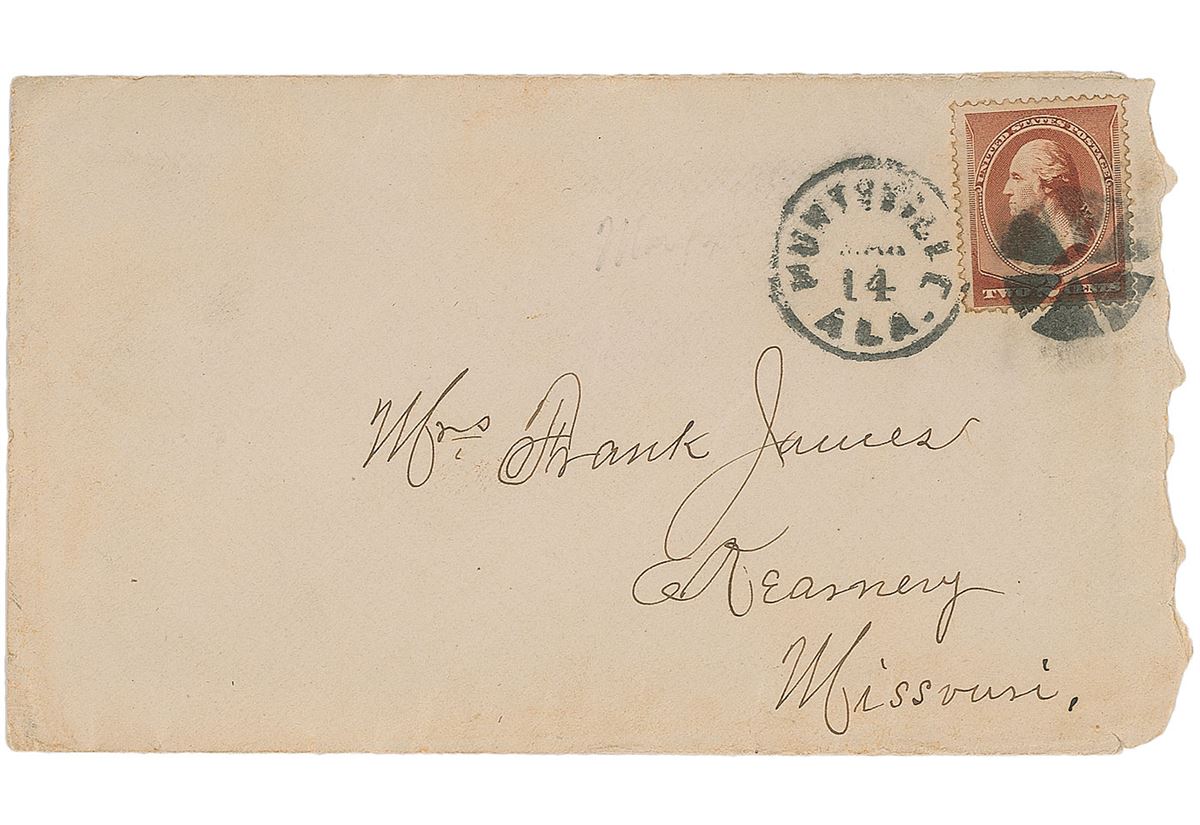 UNITED STATES POSTAGE
TWO CENTS
HUNTSVILLE
14
ALA.
Mrs Frank James
Kearney
Missouri.